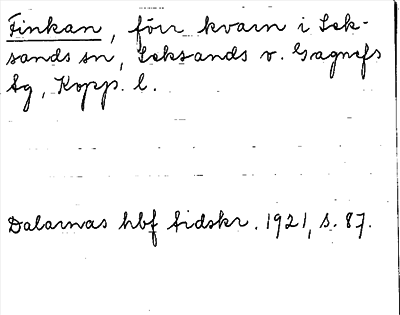 Finkan, förr kvarn i Lek-
sands sn, Leksands o. Gagnefs
tg, Kopp. l.
Dalarnas hbf tidskr. 1921, s. 87.